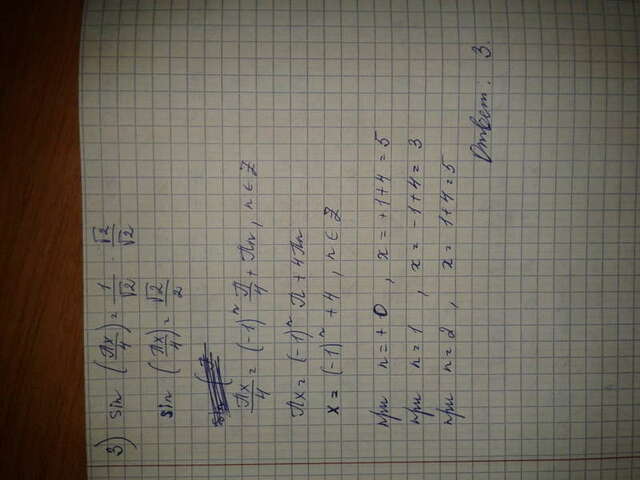 3) sin (πx/4) = 1/√2 · √2/√2
sin (πx/4) = √2/2
πx/4 = (-1)ⁿ π/4 + πn, n ∈ Z
πx = (-1)ⁿ π + 4πn
x = (-1)ⁿ + 4, n ∈ Z
при n = + 0, x = +1+4 = 5
при n = 1, x = -1+4 = 3
при n = 2, x = 1+4 = 5
Ответ: 3.